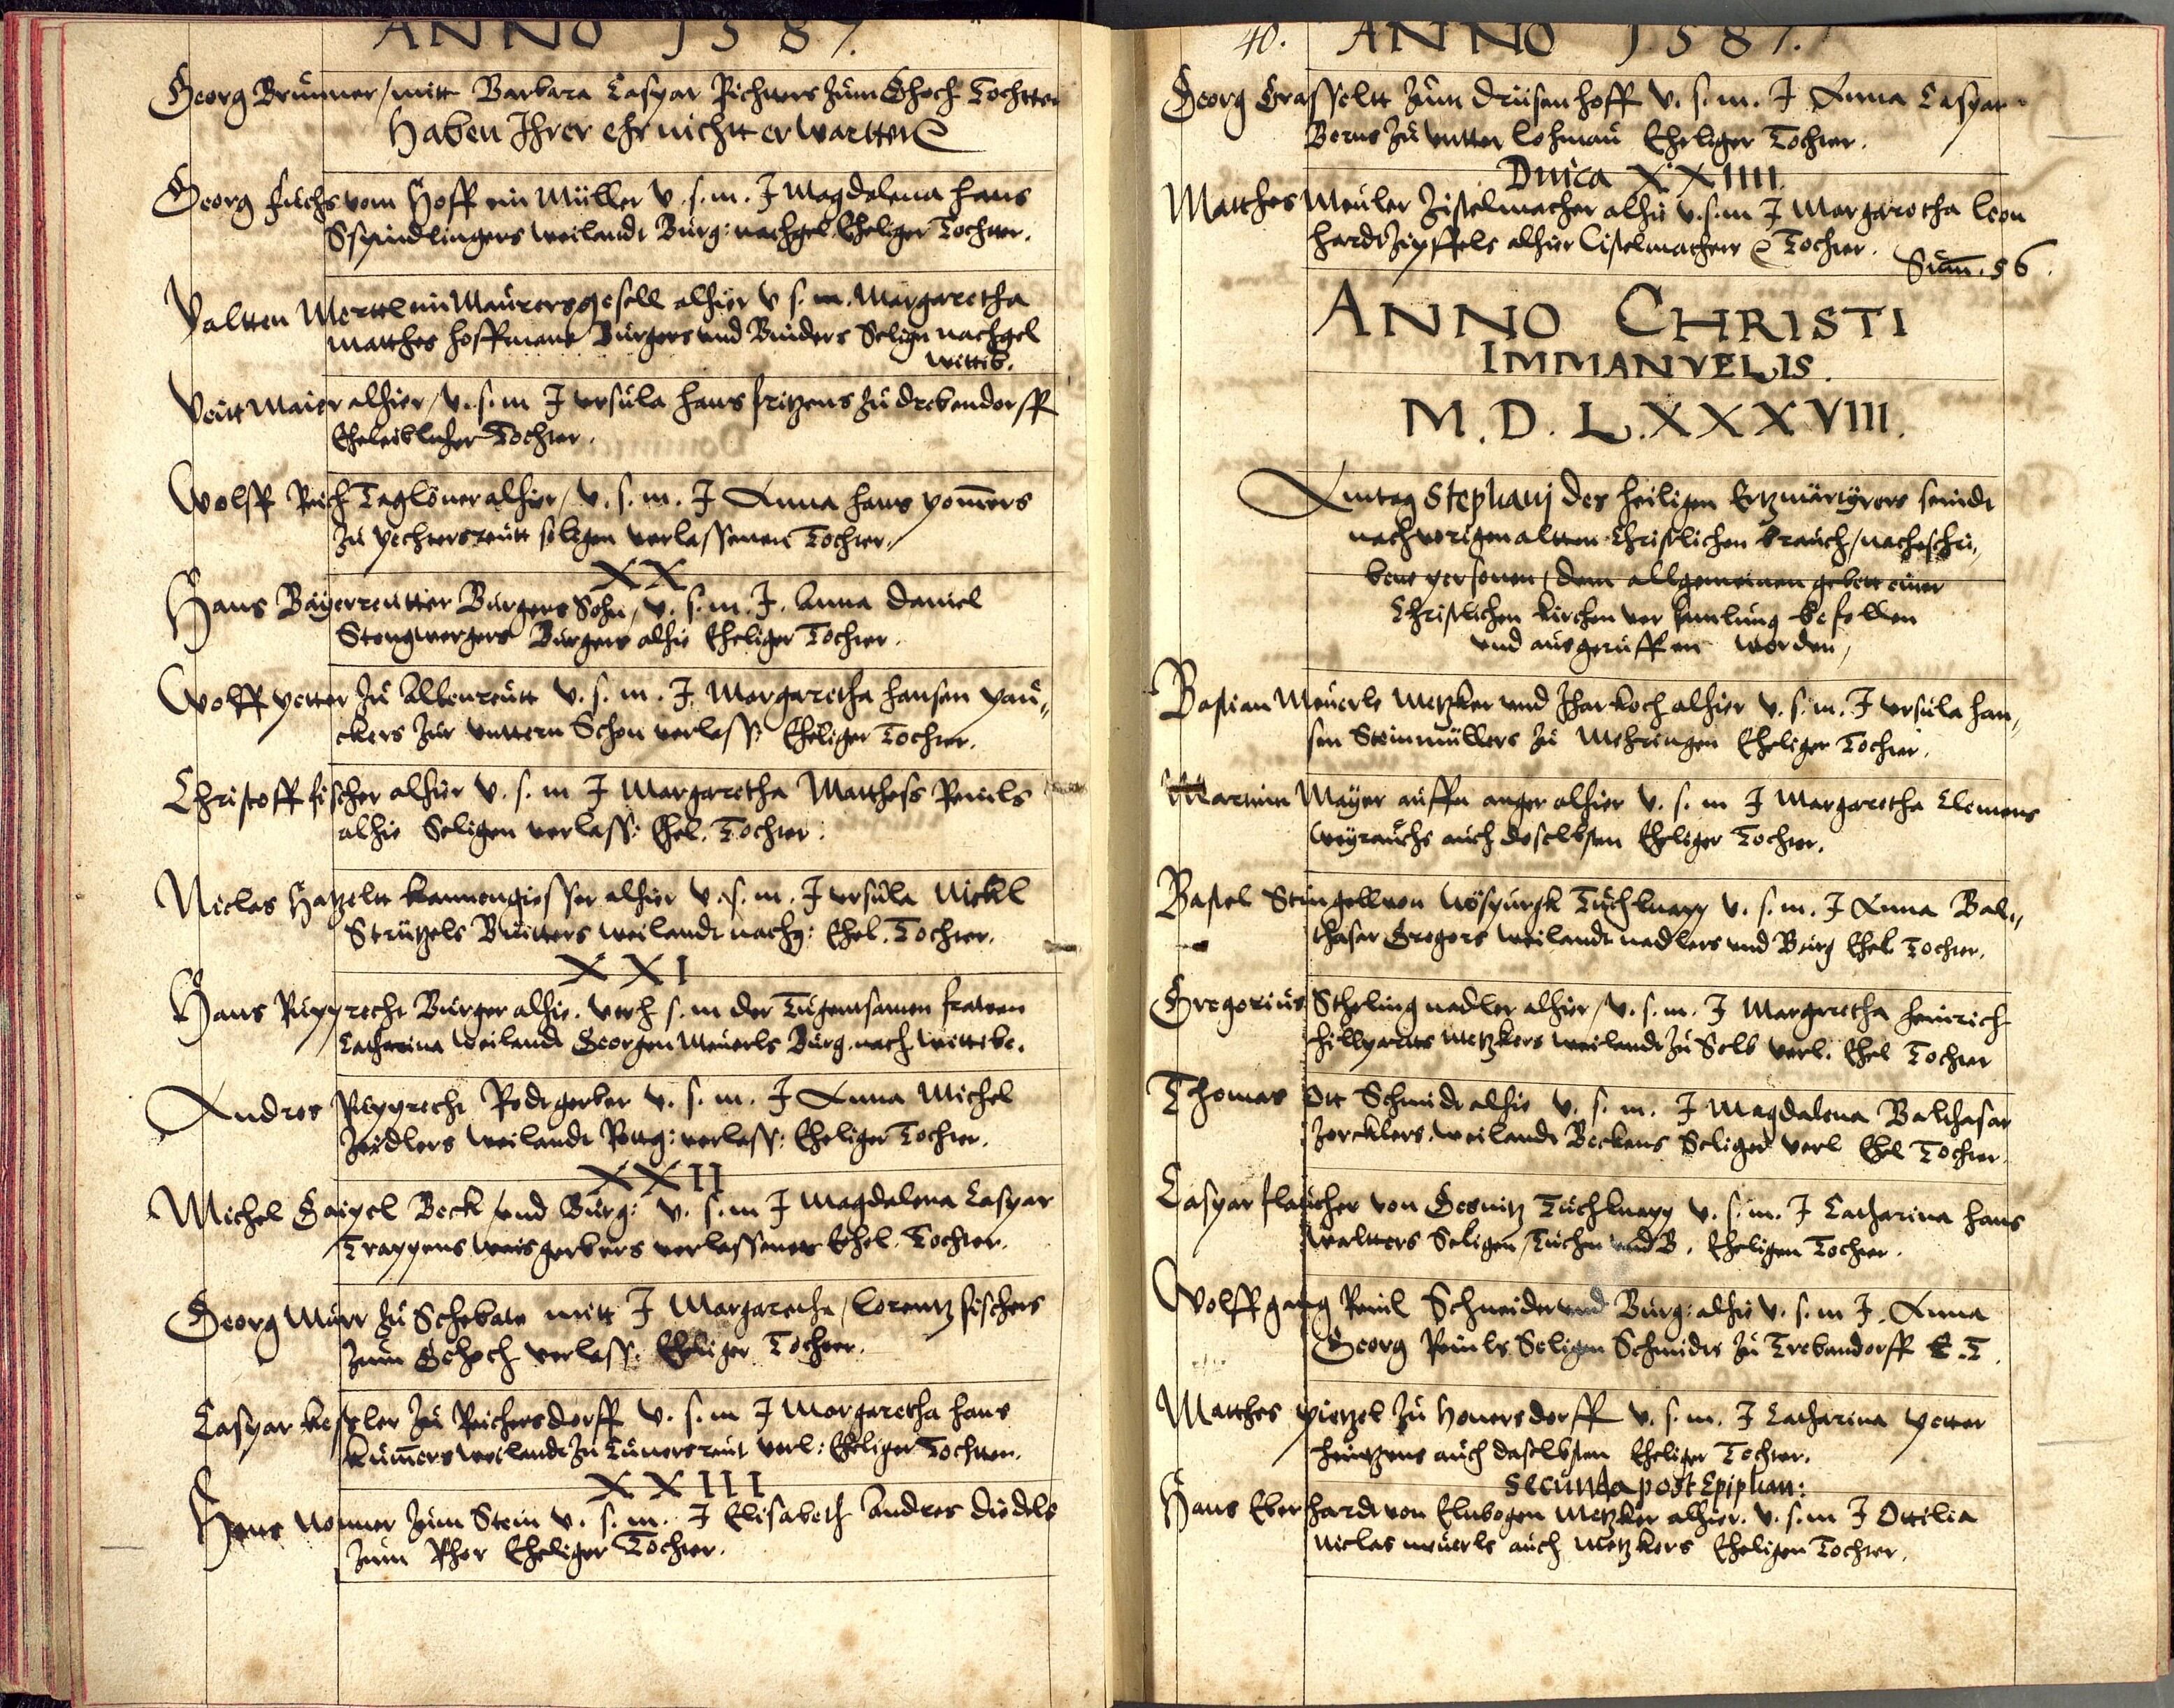 ANNO 1587.
Georg Brunner / mitt Barbara Caspar Richters zum Ghoch Tochtter
Haben Ihrer ehe nichtt erwarttet
Georg fuchs vom Hoff ein Müller v. s. m. J Magdalena hans
Spindlingers weilandt Bürg: nachgel. Eheliger Tochter.
Valtten Merttl ein Maurersgesell alhier v s. m. Margaretha
Matthes hoffmans Burgers und Binders Seligen nachgel
Wittib.
Veitt Maier alhier / v. s. m J Ursula hans fritzens zu drebendorff
Eheleiblicher Tochter.
Wolff Reich Taglöner alhier / v. s. m. J Anna hans pom̄ers
zu pechtersreutt seligen verlassenen Tochter.
XX
Hans Bayerreutter Burgers Sohn / v. s. m. J. Anna Daniel
Burgers alhie Eheliger Tochter.
Wolff petter zu Albenreutt v. s. m. J. Margaretha hansen pau„
ckers zur unttern Schon verlass: Eheliger Tochter.
Christoff fischer alhier v. s. m J Margaretha Matthess Reinls
alhie Seligen verlass: Ehel. Tochter.
Niclas Hatzeltt kannengiesser alhier v. s. m. J Ursula Nickl
Strützels weilandt nachg: Ehel. Tochter.
XXI
Hans Rupprecht Burger alhie. verh s. m der Tugentsamen frawen
Catharina weilandt Georgen Meuerls Bürg. nach. wittibe.
Andres Rupprecht Rodtgerber v. s. m. J Anna Michel
Zeidlers weilandt verlass: Eheliger Tochter.
XXII
Michel Gaipel Beck / und Bürg: v. s. m J Magdalena Caspar
Trappens weisgerbers verlassener Ehel. Tochter.
Georg Mürr zu Schebate mitt J Margaretha / Lorentz fischers
zum Gehoch verlass. Eheliger Tochter.
Caspar kessler zu Reichersdorff v. s. m J Margaretha hans
küm̄ers weilandt zu Tünersreut verl: Eheliger Tochter.
XXIII
Hans Nonner zum Stein v. s. m. J Elisabeth Andres diedels
zum Rhor Eheliger Tochter.
40. ANNO 1587.
Georg Grasseltt zum Drüsenhoff v. s. m. J Anna Caspar
Berns zu untter Lohmau Eheliger Tochter.
Dnica XXIIII
Matthes Meuler Zistelmacher alhie v. s. m J Margaretha Leon
hardt alhier Cistelmachers Tochter. Sum̄. 56.
ANNO CHRISTI
IMMANVELIS.
M.D.L.XXXVIII.
Am tag Stephani des heiligen Ertzmärtyrers seindt
nach vorigen altten Christlichen brauch / nacheschri„
bene personen / dem allgemeinen gebett einer
Christlichen kirchen ver samlung befollen
und ausgeruffen worden,
Bastian Meuerle Metzker und alhier v. s. m. J Ursula han„
sen Steinmüllers zu Mehringen Eheliger Tochter.
Martinn Mayer auffn anger alhier v. s. m J Margaretha Clemens
weyrauchs auch doselbsten Eheliger Tochter.
Bastel Stingell von Tuchknapp v. s. m. J Anna Bal„
thasar Gregers weilandt nadlers und Bürg Ehel Tochter.
Gregorius Stheling nadler alhier / v. s. m. J Margaretha heinrich
metzkers weilandt zu Selb verl. Ehel Tochter
Thomas Ott Schmidt alhie v. s. m. J Magdalena Balthasar
weilandt Beckens Seliger verl Ehel Tochter.
Caspar von Gesnitz Tuchknapp v. s. m. J Catharina hans
waltters Seligen / Tuchm und B. Eheligen Tochter.
Wolffgang Reinl Schneider und Bürg: alhie v. s. m J. Anna
Georg Reinls Seligen Schmidts zu Trebendorff E. T.
Matthes pietzel zu Honersdorff v. s. m. J Catharina petter
heintzens auch daselbsten Eheliger Tochter.
Secunda post Epiphan:
Hans Eberhardt von Elnbogen Metzker alhier. v. s. m J Ottilia
Niclas meuerls auch Metzkers Eheligen Tochter.